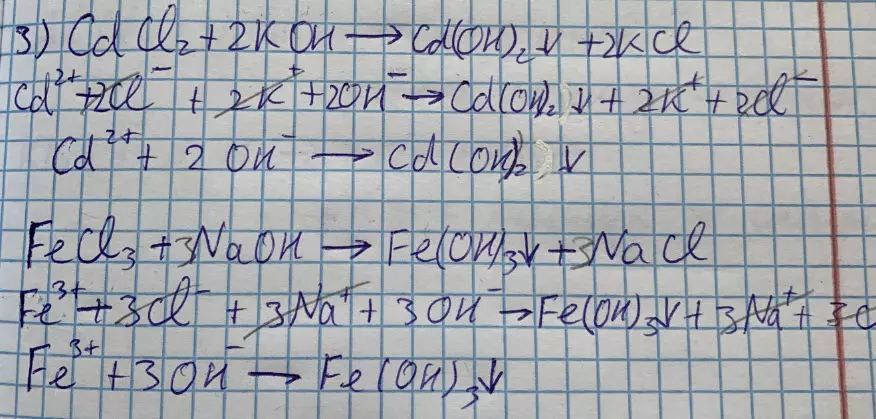 3) CdCl₂ + 2KOH → Cd(OH)₂↓ + 2KCl
Cd²⁺ + 2Cl⁻ + 2K⁺ + 2OH⁻ → Cd(OH)₂↓ + 2K⁺ + 2Cl⁻
Cd²⁺ + 2OH⁻ → Cd(OH)₂↓
FeCl₃ + 3NaOH → Fe(OH)₃↓ + 3NaCl
Fe³⁺ + 3Cl⁻ + 3Na⁺ + 3OH⁻ → Fe(OH)₃↓ + 3Na⁺ + 3C
Fe³⁺ + 3OH⁻ → Fe(OH)₃↓